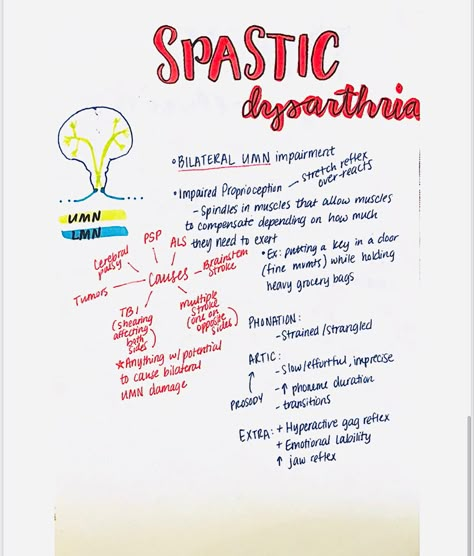 SPASTIC
dysarthria
•BILATERAL UMN impairment
•Impaired Proprioception — stretch reflex
over-reacts
-Spindles in muscles that allow muscles
to compensate depending on how much
they need to exert
•Ex: putting a key in a door
(fine mvmts) while holding
heavy grocery bags
UMN
LMN
Causes
Cerebral
palsy
PSP
ALS
Brainstem
Stroke
Tumors
TBI
(shearing
affecting
both
sides)
multiple
Stroke
(one on
opposite
sides)
*Anything w/ potential
to cause bilateral
UMN damage
PHONATION:
-Strained/strangled
ARTIC:
-slow/effortful, imprecise
-↑ phoneme duration
-transitions
PROSODY
EXTRA: + Hyperactive gag reflex
+ Emotional lability
↑ jaw reflex